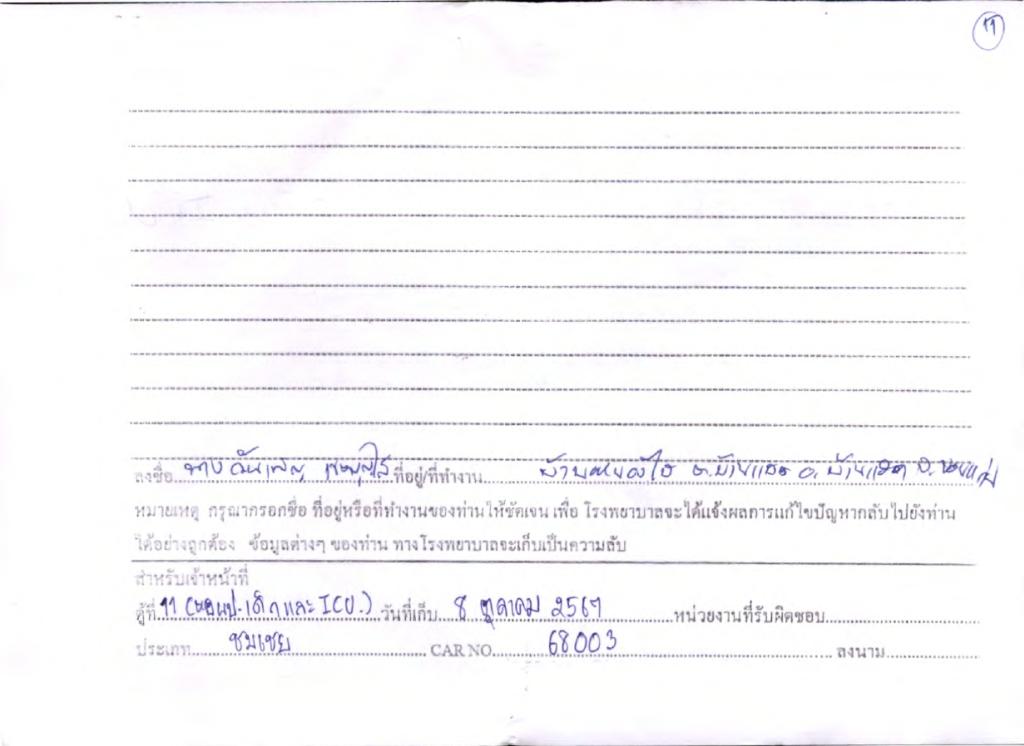 11
ลงชื่อ นาง ที่อยู่/ที่ทำงาน ต.บ้านแฮด อ.บ้านแฮด จ.ขอนแก่น
หมายเหตุ กรุณากรอกชื่อ ที่อยู่หรือที่ทำงานของท่านให้ชัดเจน เพื่อ โรงพยาบาลจะได้แจ้งผลการแก้ไขปัญหากลับไปยังท่าน
ได้อย่างถูกต้อง ข้อมูลต่างๆ ของท่าน ทางโรงพยาบาลจะเก็บเป็นความลับ
สำหรับเจ้าหน้าที่
ตู้ที่ 11 (หอผป.เด็กและ ICU.) วันที่เก็บ 8 ตุลาคม 2567 หน่วยงานที่รับผิดชอบ
ประเภท ชมเชย CAR NO. 68003 ลงนาม